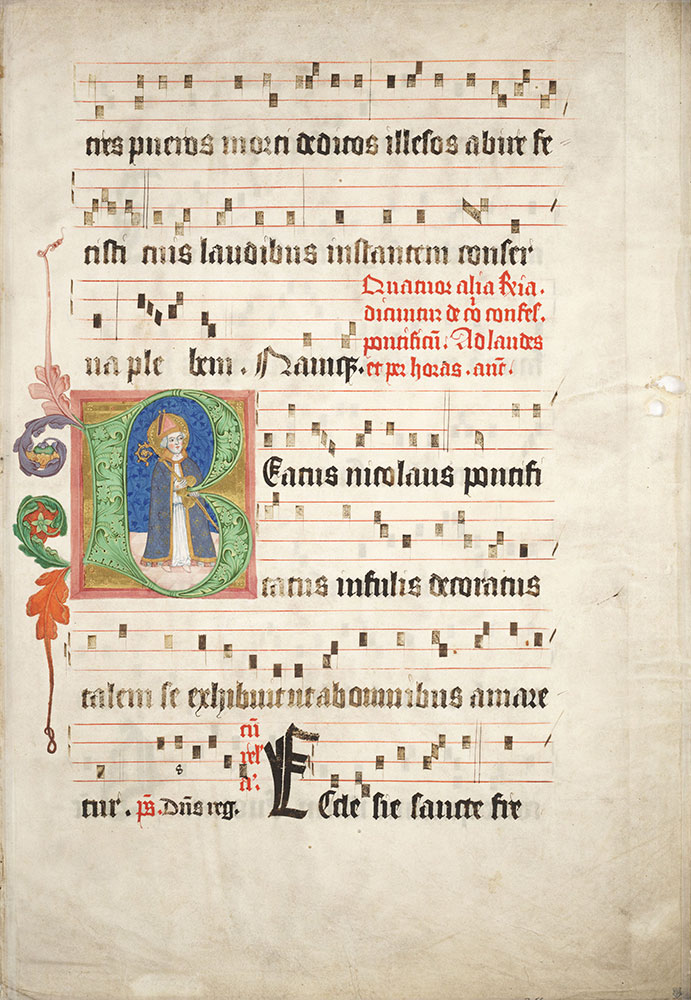 tres pueros morti deditos illesos abire fe
cisti tuis laudibus instantem conser
na ple bem. Namq3.
Quatuor alia Ria.
dicuntur de co confes.
pontificū. Ad laudes
et per horas. anť.
Beatus nicolaus pontifi
catus infulis decoratus
talem se exhibuit ut ab omnibus amare
tur. ps. Dūs reg. cū rel' a'.
Ecclesie sancte fre